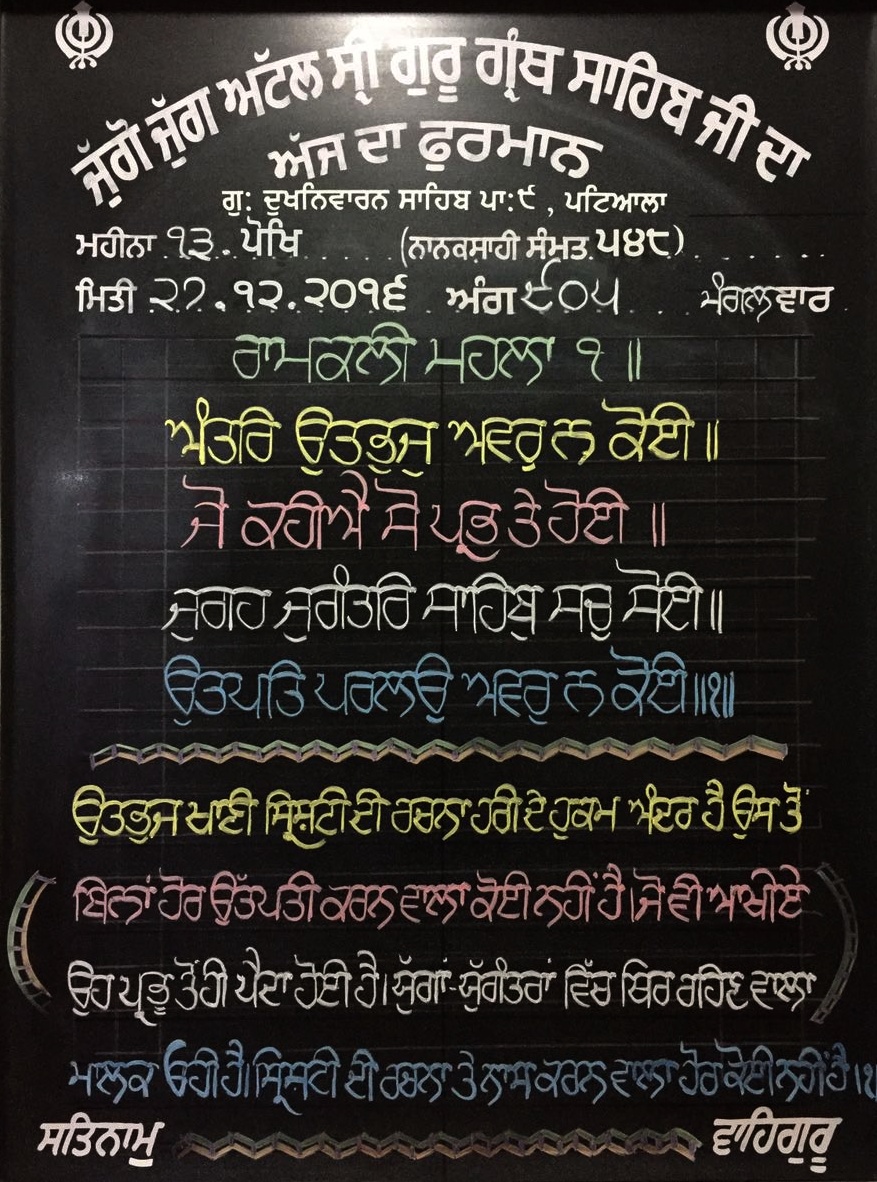 ਜੁੱਗੋ ਜੁੱਗ ਅਟੱਲ ਸ੍ਰੀ ਗੁਰੂ ਗ੍ਰੰਥ ਸਾਹਿਬ ਜੀ ਦਾ
ਅੱਜ ਦਾ ਫੁਰਮਾਨ
ਗੁ: ਦੁਖਨਿਵਾਰਨ ਸਾਹਿਬ ਪਾ:੯ , ਪਟਿਆਲਾ
ਮਹੀਨਾ ੧੩. ਪੋਖਿ (ਨਾਨਕਸਾਹੀ ਸੰਮਤ ੫੪੮)
ਮਿਤੀ ੨੭.੧੨.੨੦੧੬ ਅੰਗ ੯੦੫ ਮੰਗਲਵਾਰ
ਰਾਮਕਲੀ ਮਹਲਾ ੧ ॥
ਅੰਤਰਿ ਉਤਭੁਜੁ ਅਵਰੁ ਨ ਕੋਈ ॥
ਜੋ ਕਹੀਐ ਸੋ ਪ੍ਰਭ ਤੇ ਹੋਈ ॥
ਜੁਗਹ ਜੁਗੰਤਰਿ ਸਾਹਿਬੁ ਸਚੁ ਸੋਈ॥
ਉਤਪਤਿ ਪਰਲਉ ਅਵਰੁ ਨ ਕੋਈ॥੧॥
ਉਤਭੁਜ ਖਾਣੀ ਸ੍ਰਿਸ਼ਟੀ ਦੀ ਰਚਨਾ ਹਰੀ ਦੇ ਹੁਕਮ ਅੰਦਰ ਹੈ ਉਸ ਤੋਂ
ਬਿਨਾਂ ਹੋਰ ਉੱਤਪਤੀ ਕਰਨ ਵਾਲਾ ਕੋਈ ਨਹੀਂ ਹੈ।ਜੋ ਵੀ ਆਖੀਏ
ਉਹ ਪ੍ਰਭੂ ਤੋਂ ਹੀ ਪੈਦਾ ਹੋਈ ਹੈ। ਯੁੱਗਾਂ-ਯੁੱਗੰਤਰਾਂ ਵਿੱਚ ਥਿਰ ਰਹਿਣ ਵਾਲਾ
ਮਾਲਕ ਓਹੀ ਹੈ।ਸ੍ਰਿਸ਼ਟੀ ਦੀ ਰਚਨਾ ਤੇ ਨਾਸ ਕਰਨ ਵਾਲਾ ਹੋਰ ਕੋਈ ਨਹੀਂ ਹੈ।੧
ਸਤਿਨਾਮੁ ਵਾਹਿਗੁਰੂ